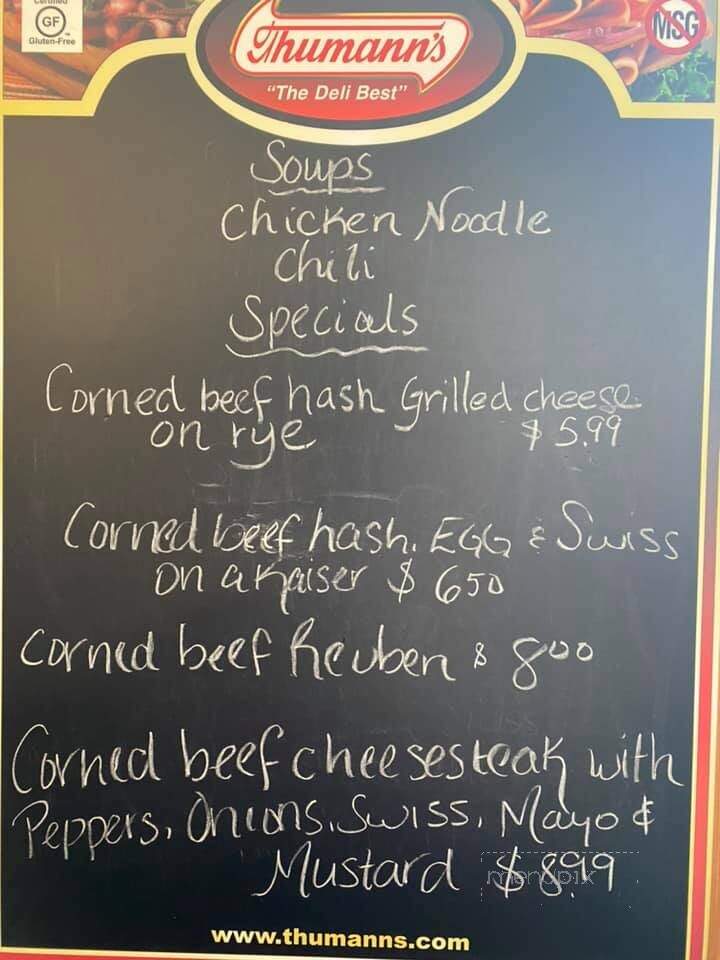 Certified
GF
Gluten-Free
Thumann's
"The Deli Best"
MSG
Soups
Chicken Noodle
Chili
Specials
Corned beef hash Grilled cheese
on rye $5.99
Corned beef hash, EGG & Swiss
on a Kaiser $ 650
Corned beef Reuben $ 800
Corned beef cheesesteak with
Peppers, Onions, Swiss, Mayo &
Mustard $8.99
menupix
www.thumanns.com